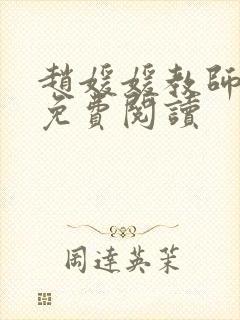 趙媛媛教師
免費閱讀
周達英茱